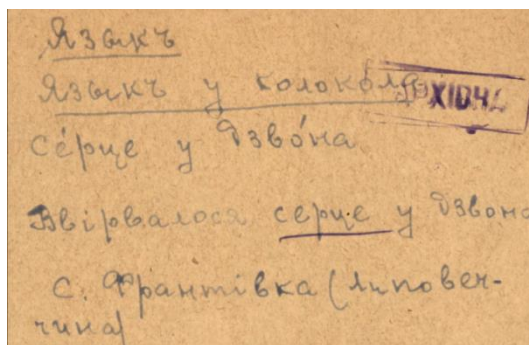 Языкъ
Языкъ у колокола
се́рце у дзво́на
Ввірвалося серце у дзвона
с. Франтівка (Липовеч-
чина)